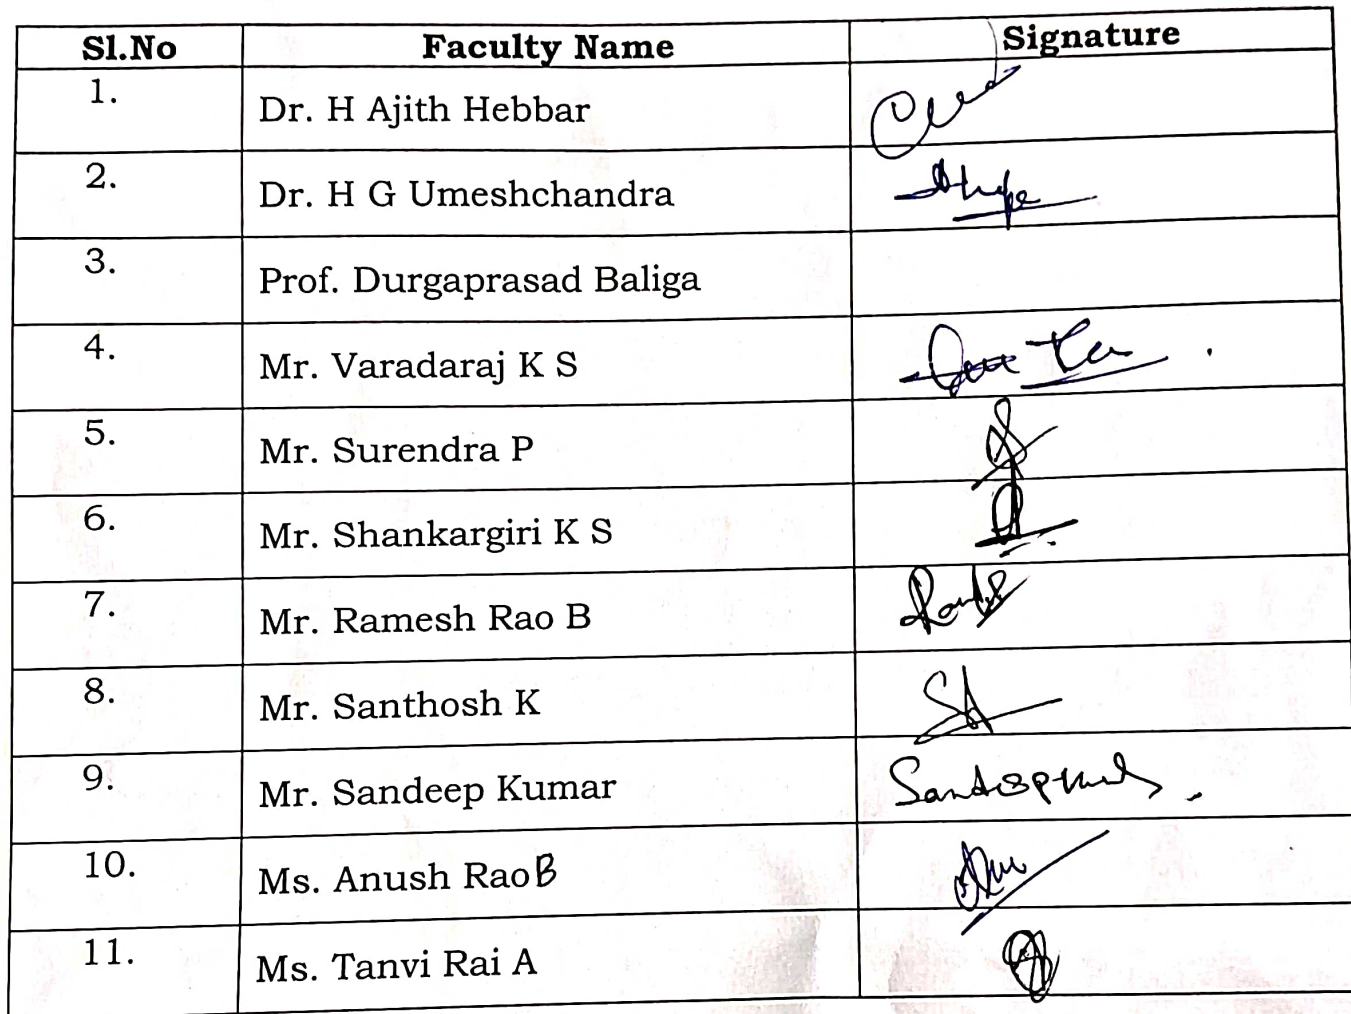 Sl.No Faculty Name Signature
1. Dr. H Ajith Hebbar
2. Dr. H G Umeshchandra
3. Prof. Durgaprasad Baliga
4. Mr. Varadaraj K S
5. Mr. Surendra P
6. Mr. Shankargiri K S
7. Mr. Ramesh Rao B
8. Mr. Santhosh K
9. Mr. Sandeep Kumar
10. Ms. Anush Rao B
11. Ms. Tanvi Rai A